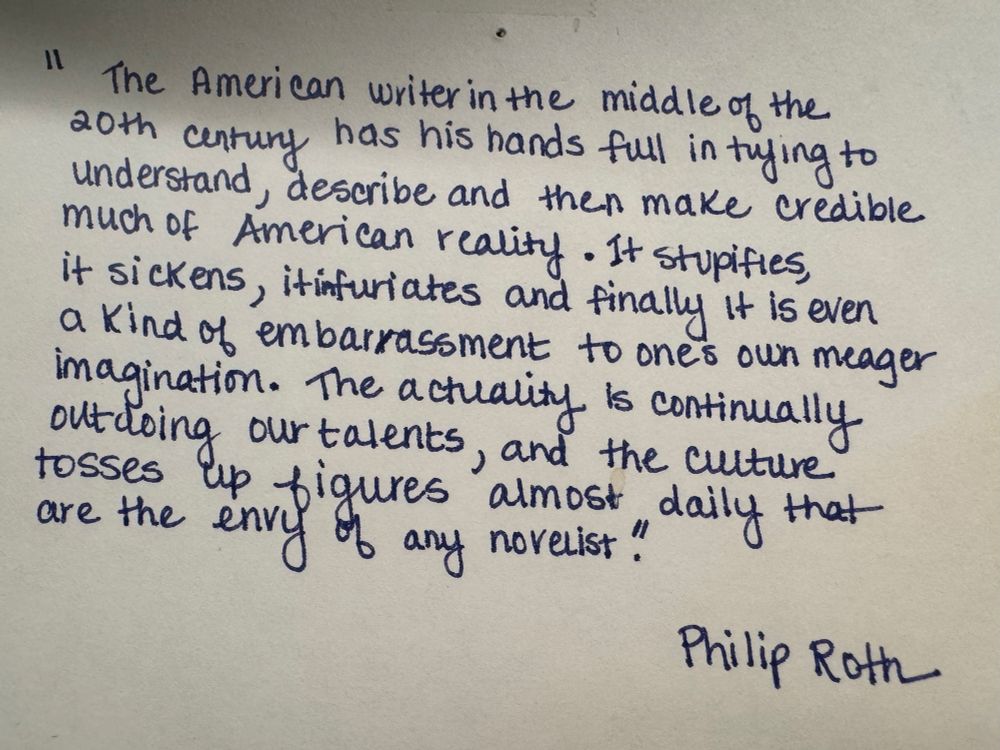 " The American writer in the middle of the
20th century has his hands full in trying to
understand, describe and then make credible
much of American reality. It stupifies,
it sickens, it infuriates and finally it is even
a kind of embarrassment to one's own meager
imagination. The actuality is continually
outdoing our talents, and the culture
tosses up figures almost daily that
are the envy of any novelist."
Philip Roth